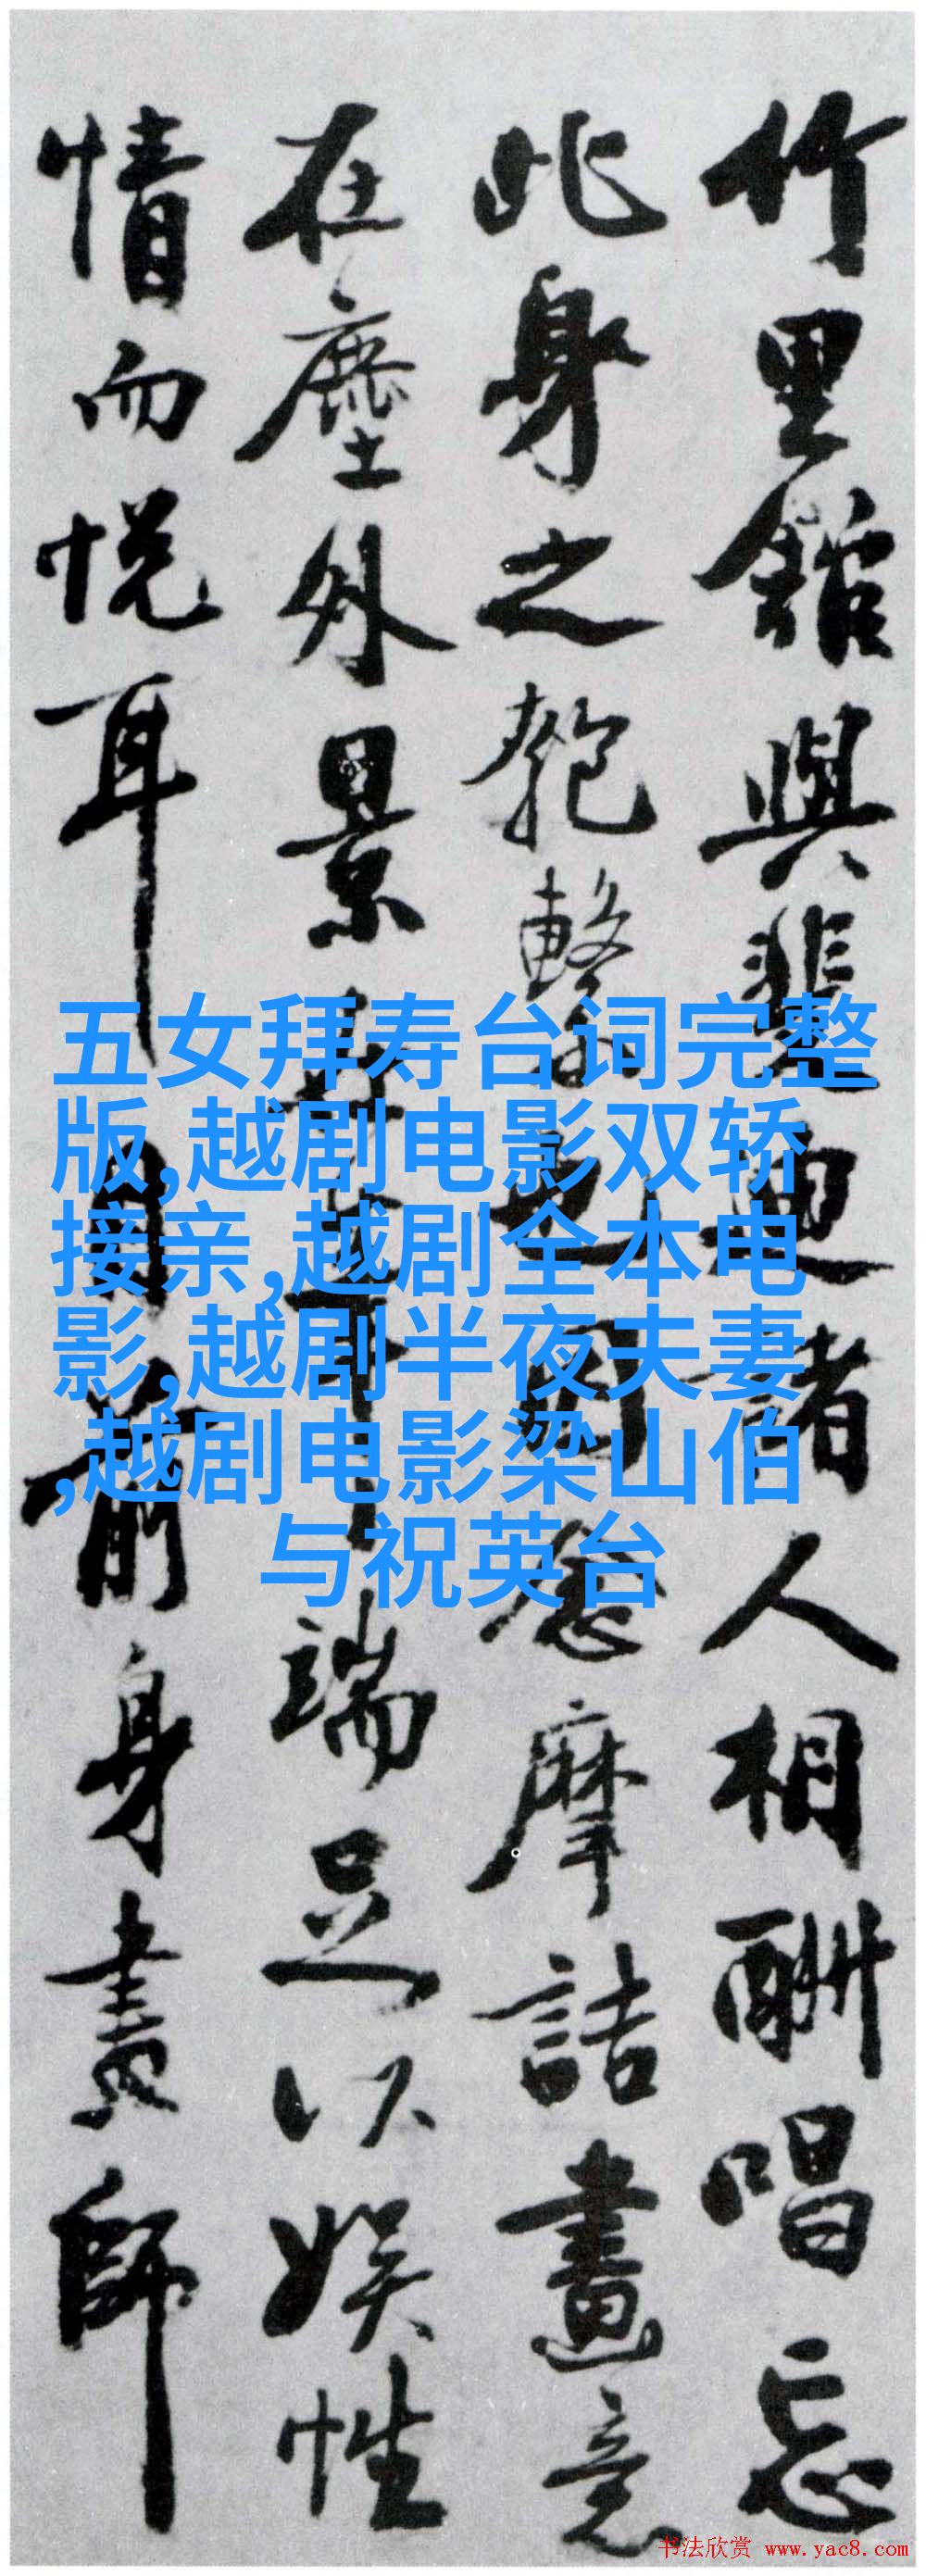 竹里館與裴迪諸人相酬唱忘
此身之匏繫也摩詰畫意
在塵外景端足以娛性
情而悅耳目前身畫師
五女拜寿台词完整
版,越剧电影双轿
接亲,越剧全本电
影,越剧半夜夫妻
,越剧电影梁山伯
与祝英台
书法欣赏 www.yac8.com